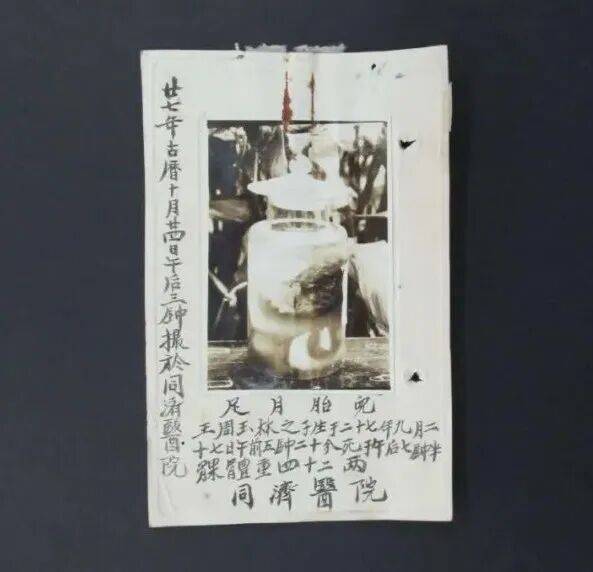 廿七年古曆十月廿四日午后三鈡攝於同濟醫院
足月胎兒
王周玉林之子生于二十七年九月二
十七日午前五鈡二十分死于午后七鈡半
裸體重四十二兩
同濟醫院